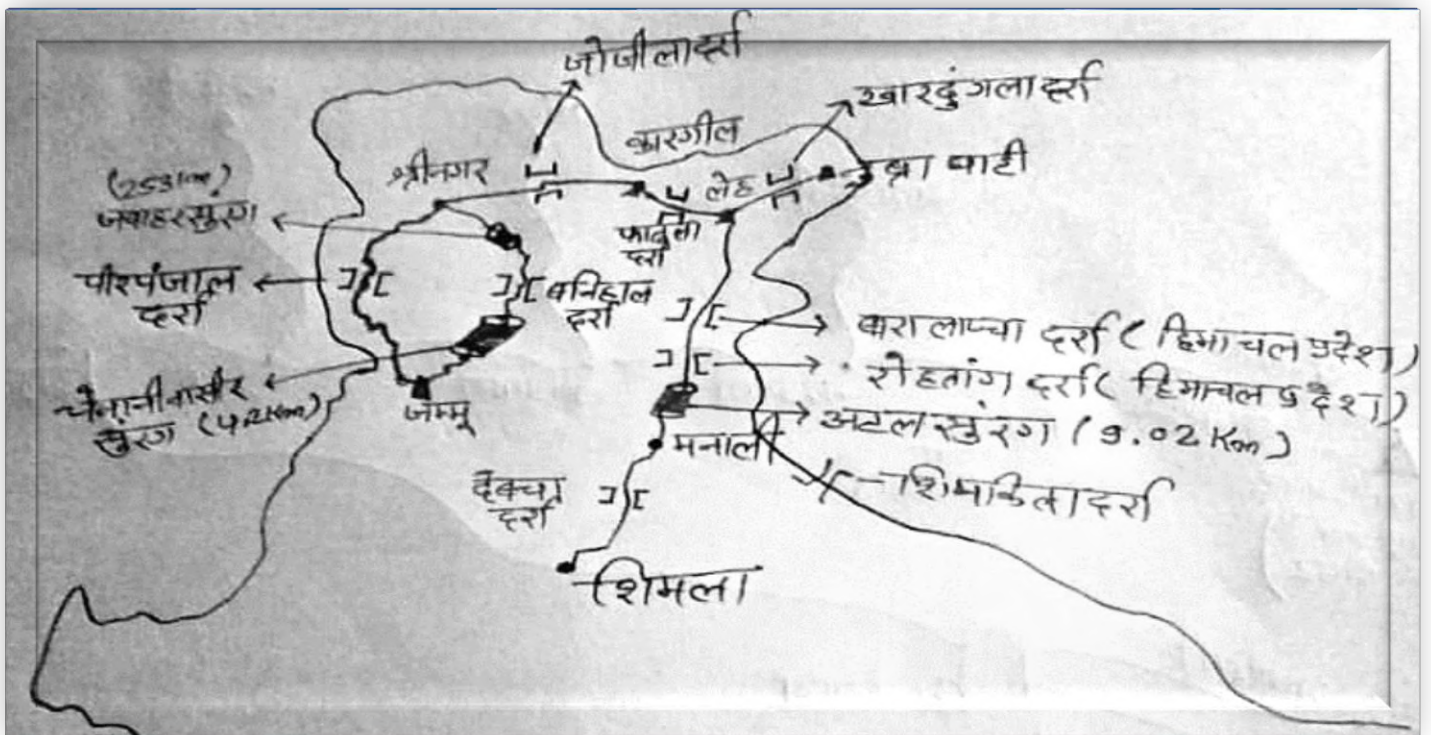 जोजीला दर्रा
खारदुंगला दर्रा
कारगील
श्रीनगर
लेह
ब्रा घाटी
(2531m)
जवाहर सुंरग
फातुला
दर्रा
पीरपंजाल
दर्रा
बनिहाल
दर्रा
बारालाप्चा दर्रा ( हिमाचल प्रदेश )
रोहतांग दर्रा ( हिमाचल प्रदेश )
चेनानी नासौर
सुंरग (9.2Km)
जम्मू
अटल सुंरग ( 9.02 Km )
मनाली
देबचा
दर्रा
शिपकिला दर्रा
शिमला